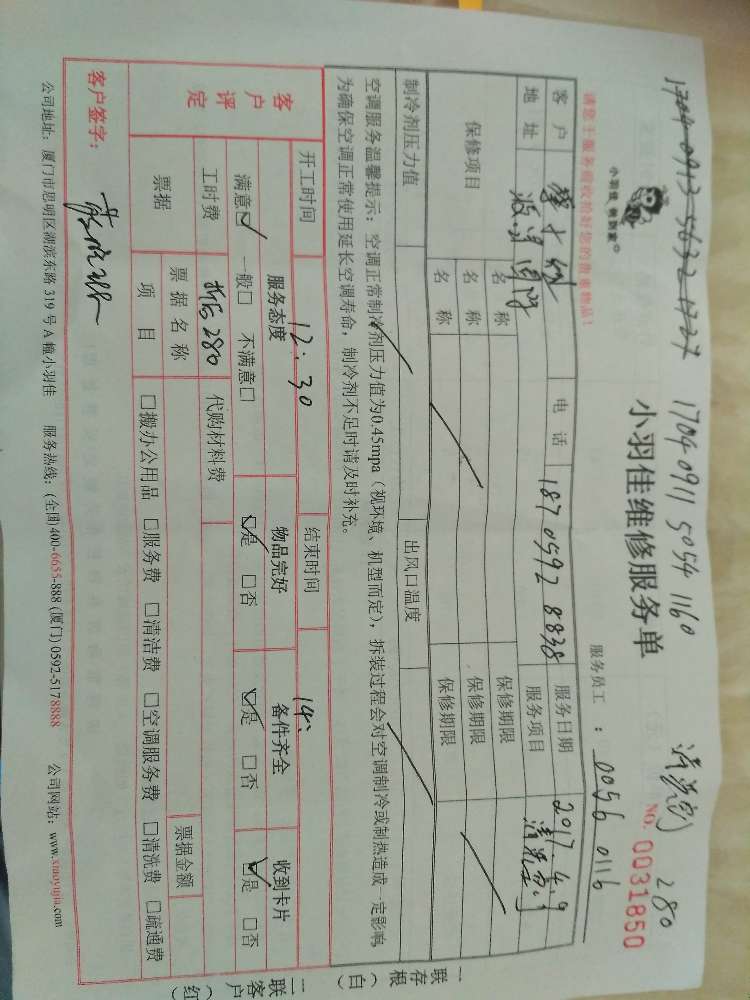 17040911 5054 1160
280
小羽佳 做到家
小羽佳维修服务单
NO. 0031850
请您于服务前收拾好您的贵重物品！
服务员工：0056 0116
客户 电话 187 0592 8838 服务日期 2017.4.9
地址 服务项目
保修项目 名称 保修期限
名称 保修期限
名称 保修期限
制冷剂压力值 出风口温度
空调服务温馨提示：空调正常制冷剂压力值为0.45mpa（视环境、机型而定），拆装过程会对空调制冷或制热造成一定影响，
为确保空调正常使用延长空调寿命，制冷剂不足时请及时补充。
开工时间 12:30 结束时间 14:
客户评定 服务态度 物品完好 备件齐全 收到卡片
满意☑ 一般□ 不满意□ ☑是 □否 ☑是 □否 ☑是 □否
工时费 折后280 代购材料费
票据 票据名称 票据金额
项目 □搬办公用品 □服务费 □清洁费 □空调服务费 □清洗费 □疏通费
客户签字：
公司地址：厦门市思明区湖滨东路319号A幢小羽佳 服务热线：(全国)400-6655-888 (厦门) 0592-5178888 公司网站：www.xiaoyujia.com
一联存根（白）
二联客户（红）